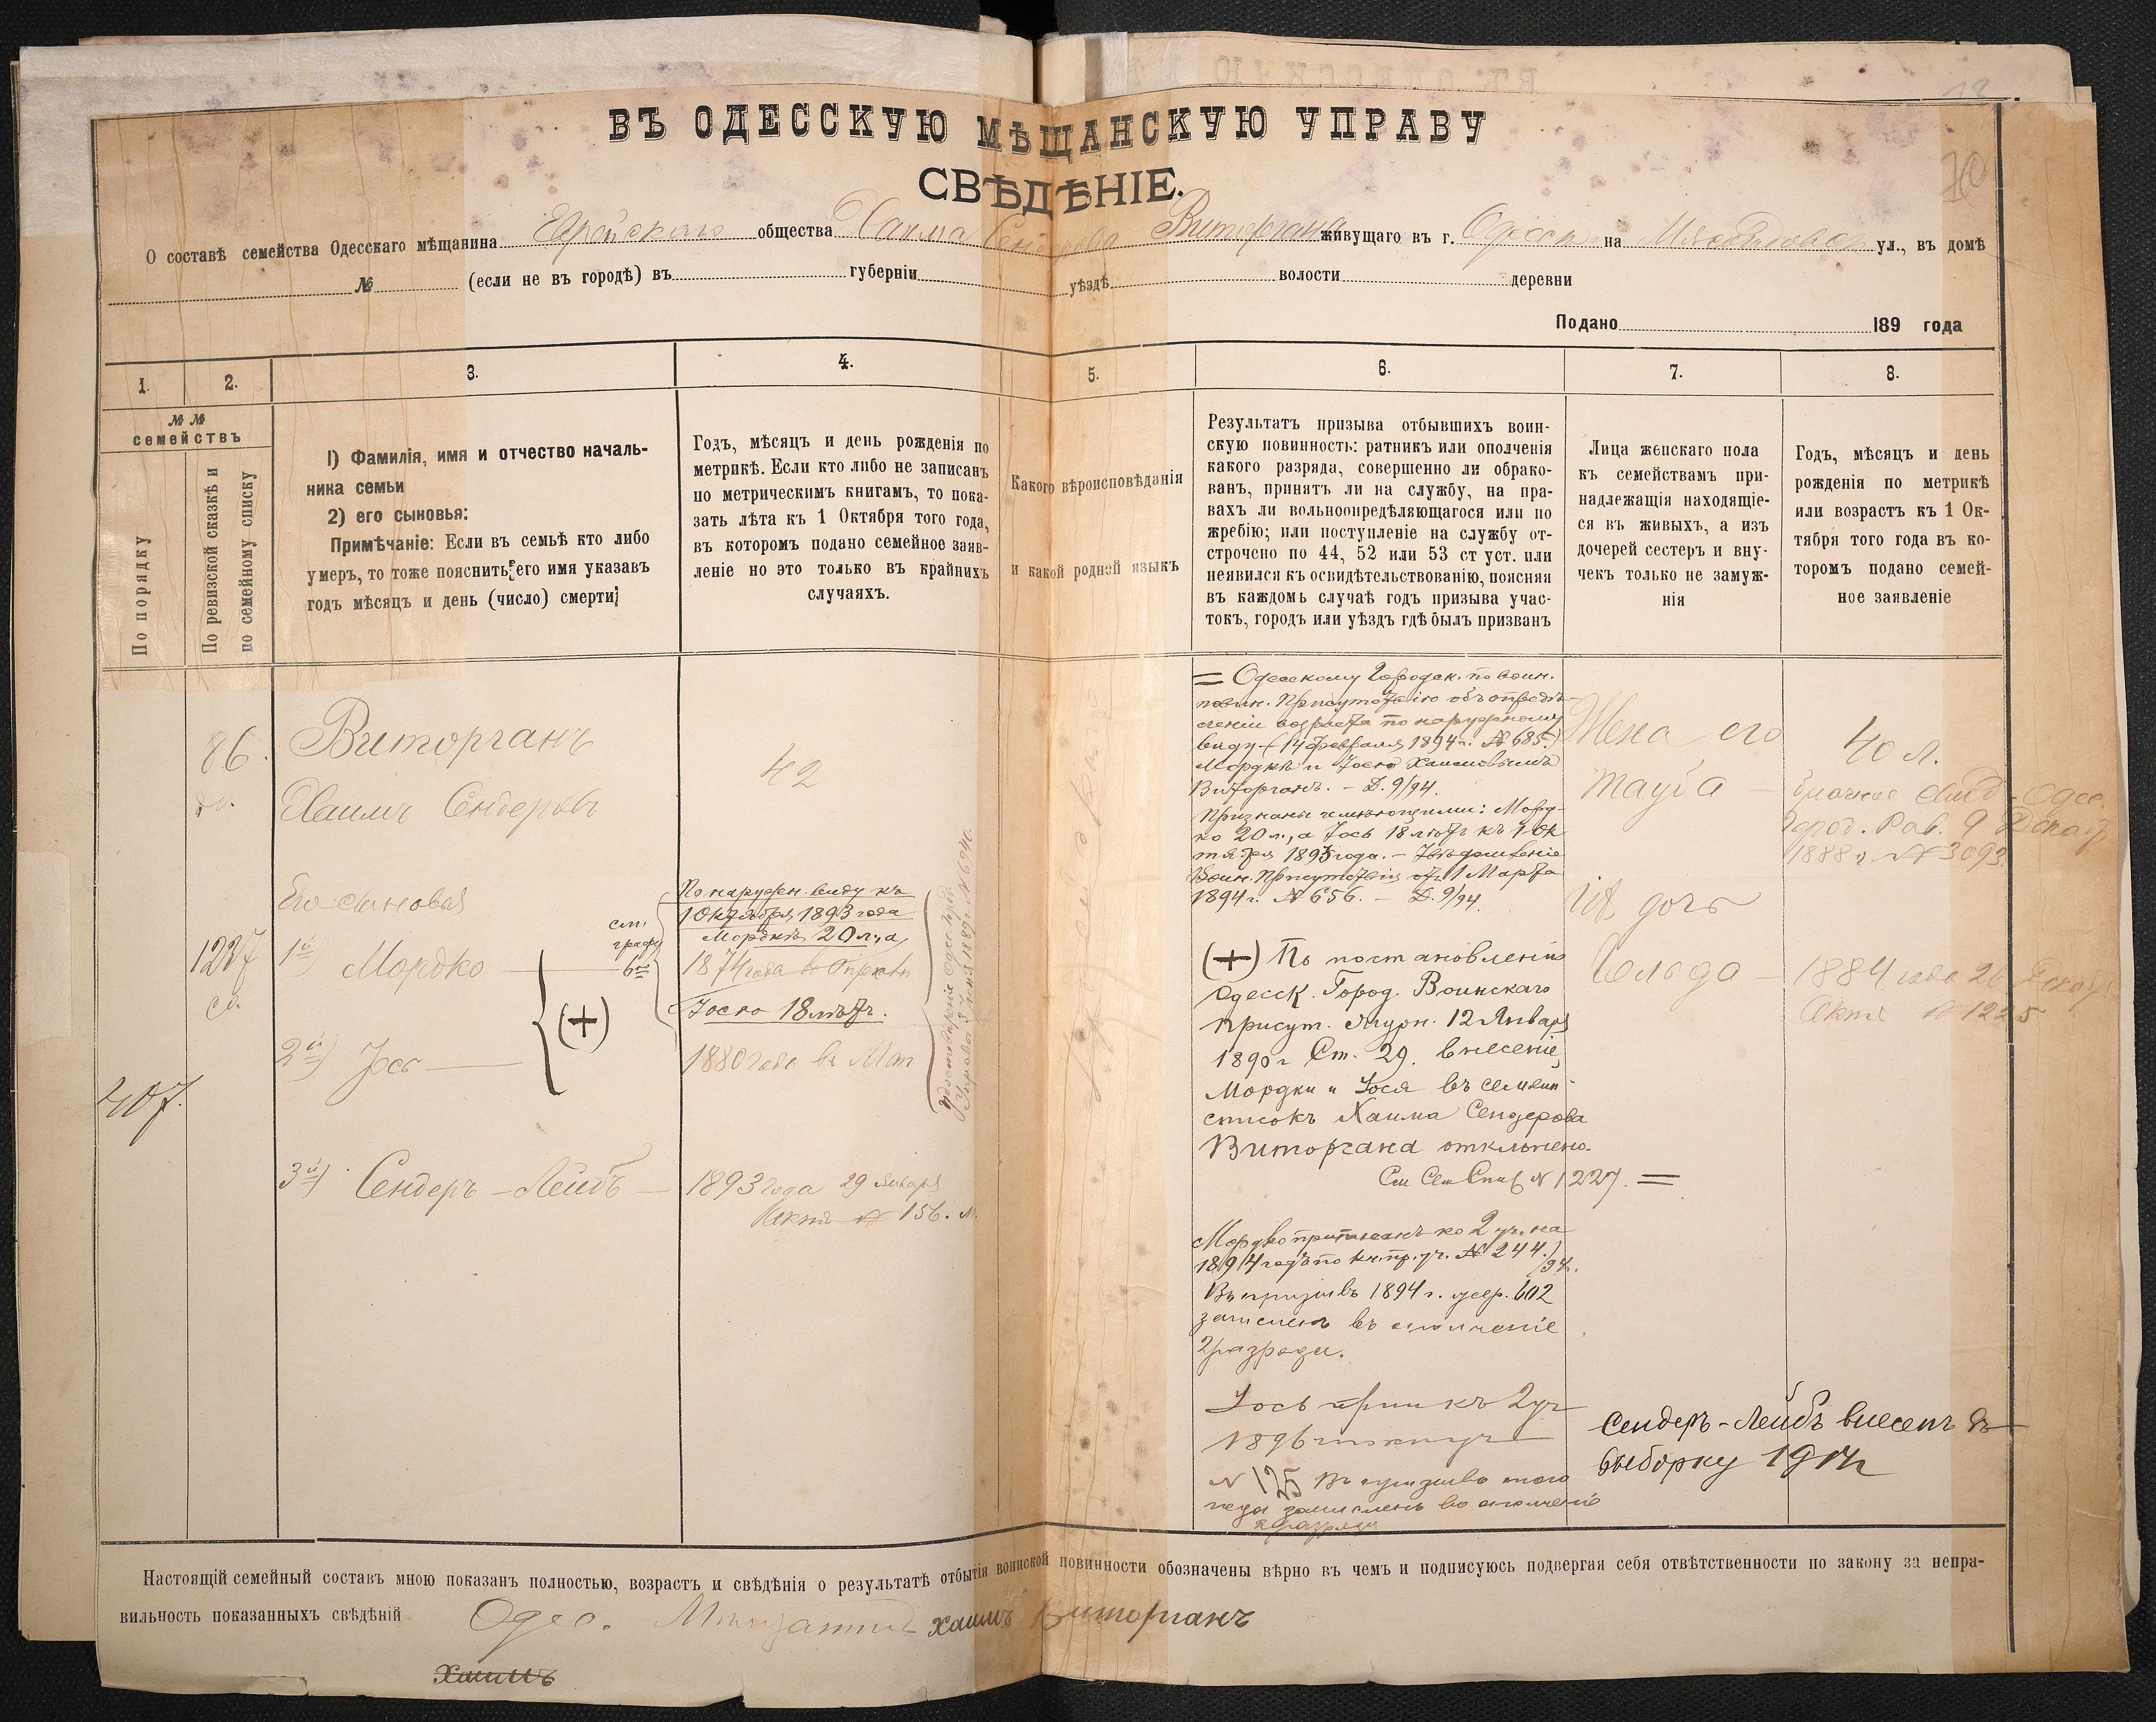 ВЪ ОДЕССКУЮ МѢЩАНСКУЮ УПРАВУ
СВѢДѢНІЕ.
О составѣ семейства Одесскаго мѣщанина Еврейскаго общества Хаима Сендерова Виторгана живущаго въ г. Одессѣ на ул., въ домѣ
№ (если не въ городѣ) въ губерніи уѣздѣ волости деревни
Подано 189 года
1. 2. 3. 4. 5. 6. 7. 8.
№ №
семействъ
По порядку
По ревизской сказкѣ и
по семейному списку
1) Фамилія, имя и отчество началь-
ника семьи
2) его сыновья:
Примѣчаніе: Если въ семьѣ кто либо
умеръ, то тоже пояснить его имя указавъ
годъ мѣсяцъ и день (число) смерти;
Годъ, мѣсяцъ и день рожденія по
метрикѣ. Если кто либо не записанъ
по метрическимъ книгамъ, то пока-
зать лѣта къ 1 Октября того года,
въ которомъ подано семейное заяв-
леніе но это только въ крайнихъ
случаяхъ.
Какого вѣроисповѣданія
и какой родной языкъ
Результатъ призыва отбывшихъ воин-
скую повинность: ратникъ или ополченія
какого разряда, совершенно ли обрако-
ванъ, принятъ ли на службу, на пра-
вахъ ли вольноопредѣляющагося или по
жребію; или поступленіе на службу от-
строчено по 44, 52 или 53 ст уст. или
неявился къ освидѣтельствованію, поясняя
въ каждомъ случаѣ годъ призыва учас-
токъ, городъ или уѣздъ гдѣ былъ призванъ
Лица женскаго пола
къ семействамъ при-
надлежащія находящіе-
ся въ живыхъ, а изъ
дочерей сестеръ и вну-
чекъ только не замуж-
нія
Годъ, мѣсяцъ и день
рожденія по метрикѣ
или возрастъ къ 1 Ок-
тября того года въ ко-
торомъ подано семей-
ное заявленіе
86.
Виторганъ
Хаимъ Сендеровъ
42
Его сыновья
1227
1й) Мордко
см.
графу
6ю
(+)
2й) Іось
407.
3й) Сендеръ-Лейбъ
По наружн. виду къ
1 Октября 1893 года
Мордкѣ 20 л., а
1874 года
Іосю 18 лѣтъ.
1880 года въ Маѣ
1893 года 29 Января
Актъ № 156. м.
= Одесскому Городск. по воин.
повин. Присутствію объ опредѣ-
леніи возраста по наружному
виду (14 февраля 1894 г. № 685.)
Мордкѣ и Іосю Хаимовымъ
Виторганъ. – Д. 9/94.
Признаны имѣющими: Морд-
ко 20 л., а Іось 18 лѣтъ къ 1 Ок
тября 1893 года. – Увѣдомленіе
Воин. Присутствія отъ 11 Марта
1894 г. № 656. – Д. 9/94.
(+) По постановленію
Одесск. Город. Воинскаго
Присут. журн. 12 Января
1890 г Ст. 29. внесеніе
Мордки и Іося въ семейн
списокъ Хаима Сендерова
Виторгана отклонено.
См Сем Спис № 1227. =
Мордко приписанъ ко 2 уч. на
1894 годъ по кн. пр. уч. № 244./94.
Въ призывъ 1894 г. жер. 602
зачисленъ въ ополченіе
2 разряда.
Іось прип къ 2 уч
1896
№ 125 Въ призывъ того
года зачисленъ въ ополченіе
2 разряда
Жена его
Тауба – 40 л.
брачное свид. Одес.
Город. Рав. 9 Декабр
1888 г. № 3093
1я дочь
Гольда – 1884 года 26 Декабр
Актъ № 1225
Сендеръ-Лейбъ внесенъ въ
выборку 1914
Настоящій семейный составъ мною показанъ полностью, возрастъ и свѣдѣнія о результатѣ отбытія воинской повинности обозначены вѣрно въ чемъ и подписуюсь подвергая себя отвѣтственности по закону за непра-
вильность показанныхъ свѣдѣній Одес. Мѣщанинъ Хаимъ Виторганъ
Хаимъ